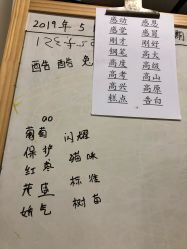 2019年5
酷 酷 免
感动 感恩
感觉 感冒
刚才 刚好
钢笔 高大
高度 高级
高考 高山
高兴 高原
糕点 告白
葡萄 闪耀
保护 猫咪
红枣 标准
茂盛 树苗
娇气